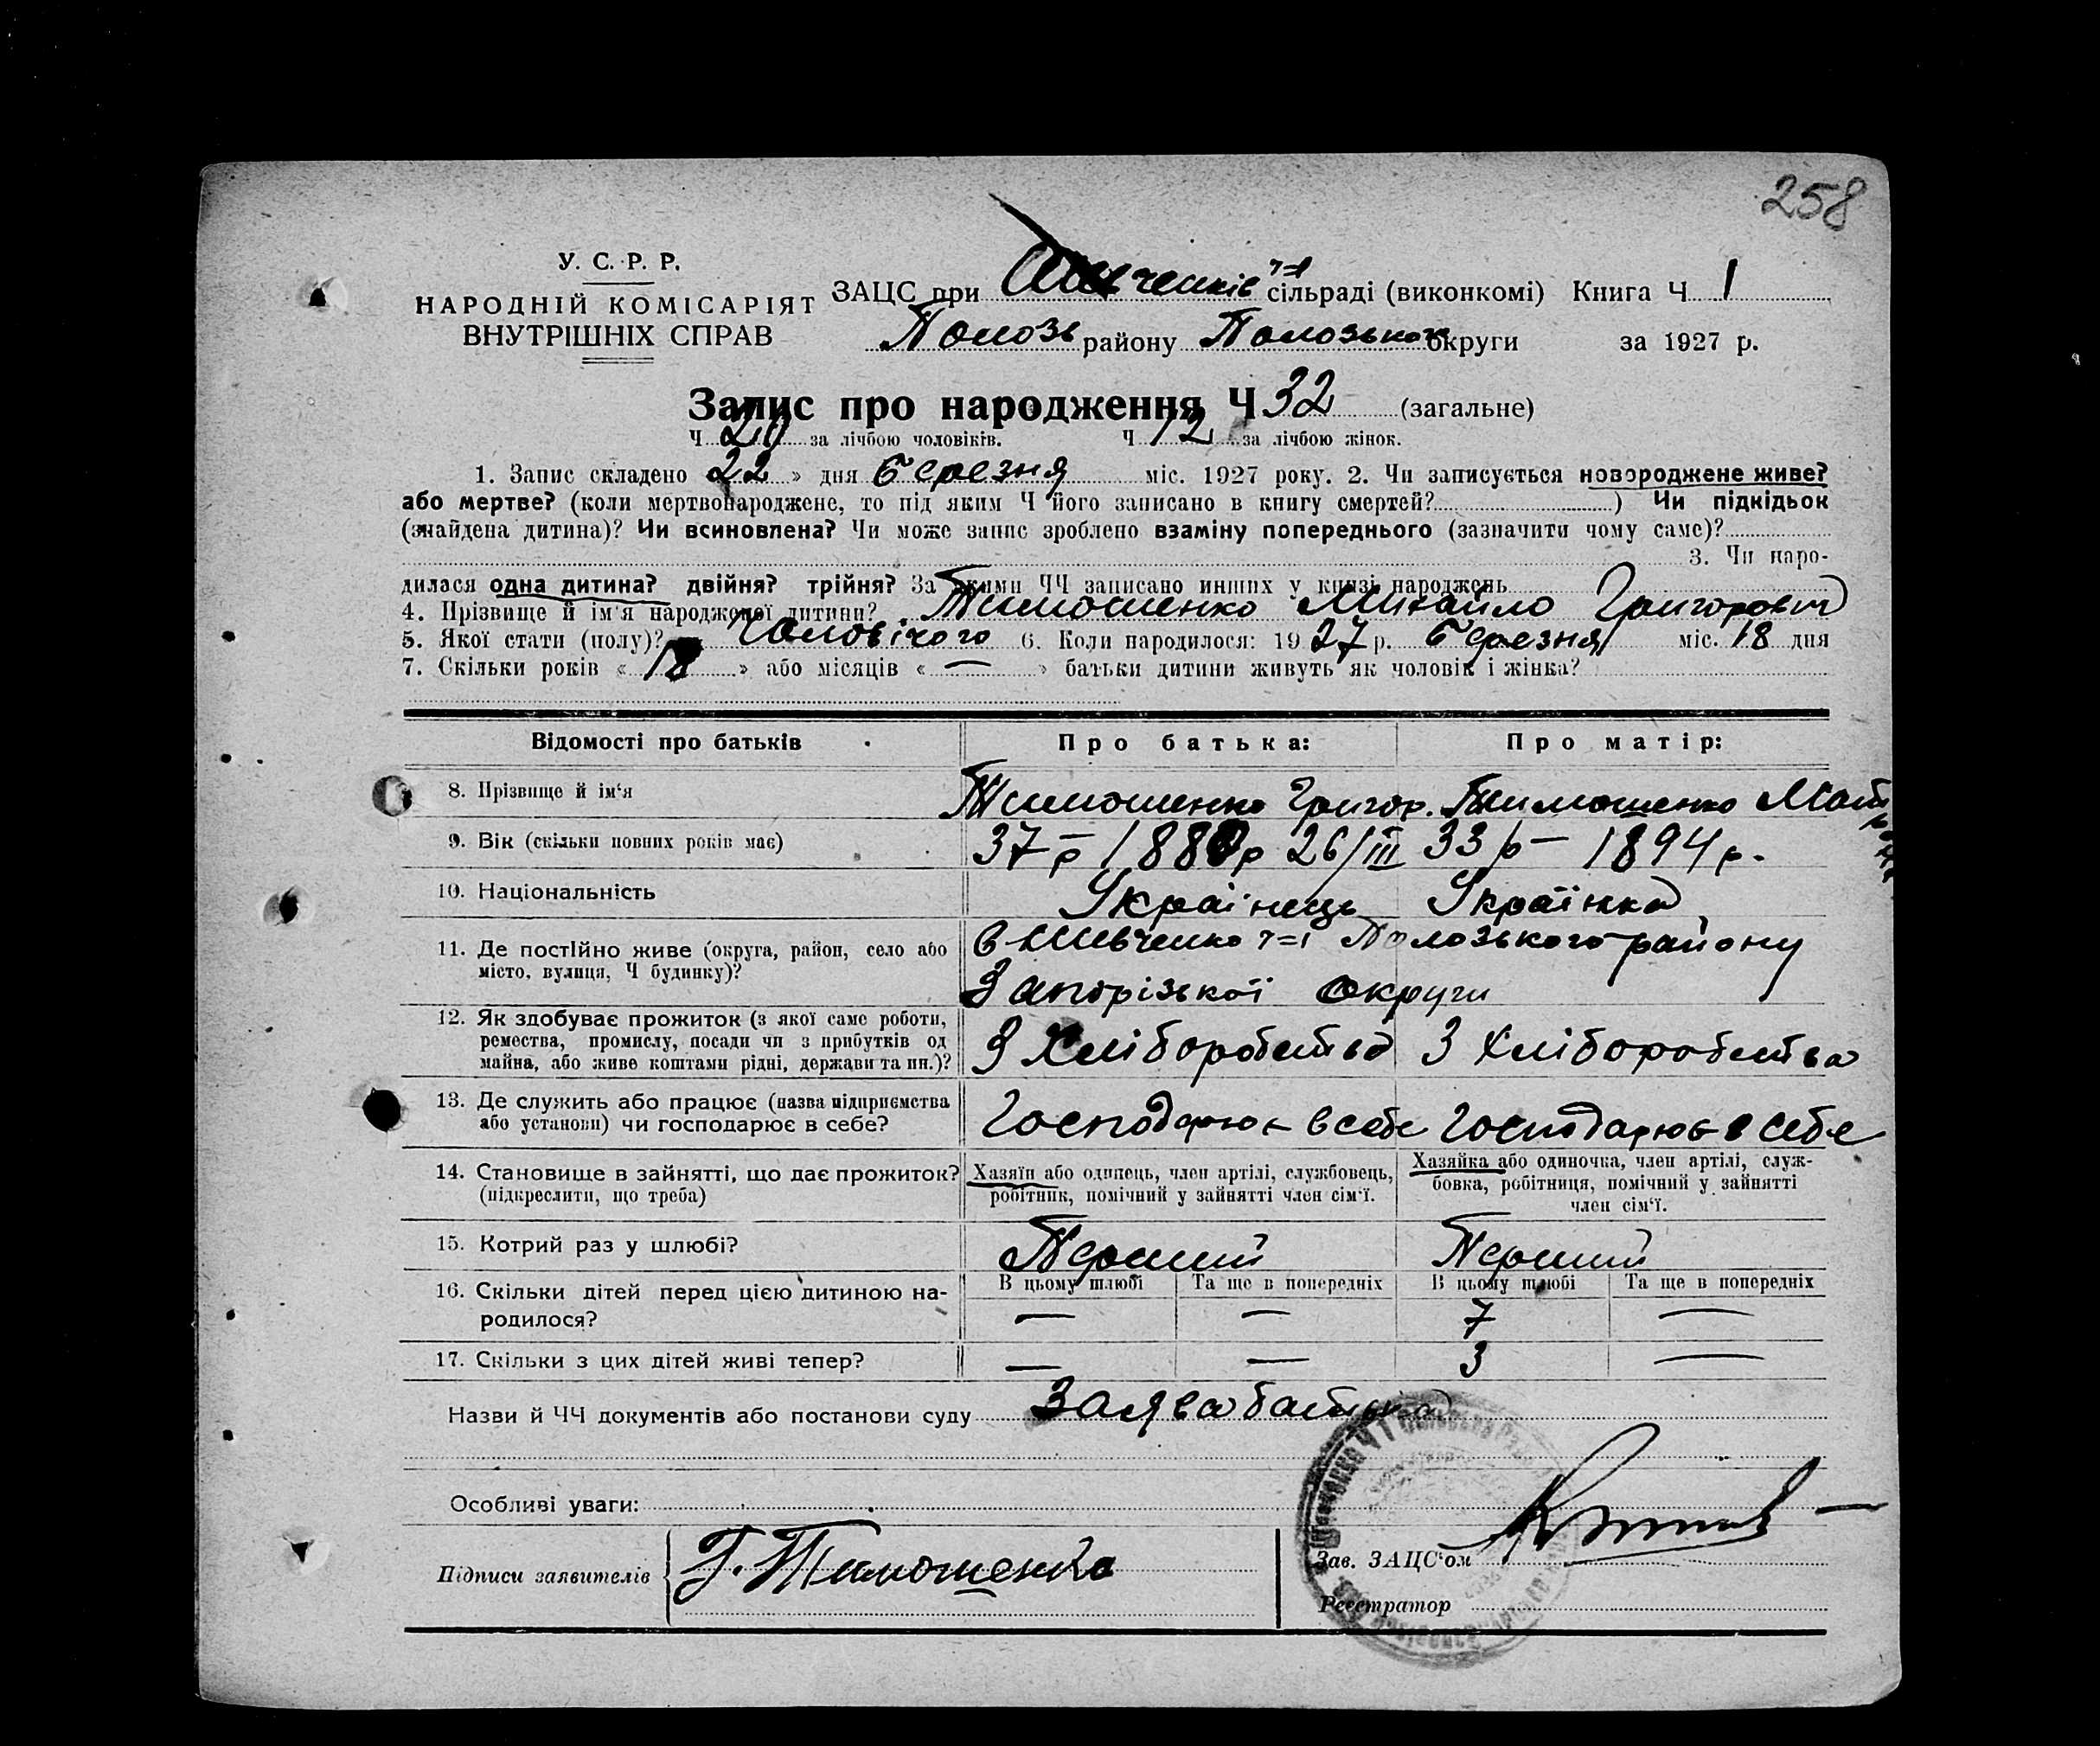 258
У. С. Р. Р.
НАРОДНІЙ КОМІСАРІЯТ
ВНУТРІШНІХ СПРАВ
ЗАЦС при Шевченків ч=1 сільраді (виконкомі) Книга Ч 1
Полозь району Полозької округи за 1927 р.
Запис про народження Ч 32 (загальне)
Ч 20 за лічбою чоловіків. Ч 12 за лічбою жінок.
1. Запис складено 22 » дня березня міс. 1927 року. 2. Чи записується новороджене живе?
або мертве? (коли мертвонароджене, то під яким Ч його записано в книгу смертей? ) Чи підкідьок
(знайдена дитина)? Чи всиновлена? Чи може запис зроблено взаміну попереднього (зазначити чому саме)?
3. Чи наро-
дилася одна дитина? двійня? трійня? За якими ЧЧ записано инших у книзі народжень
4. Прізвище й ім'я народженої дитини? Тимошенко Михайло Григорович
5. Якої стати (полу)? Чоловічого 6. Коли народилося: 1927 р. березня міс. 18 дня
7. Скільки років « 18 » або місяців « — » батьки дитини живуть як чоловік і жінка?
Відомості про батьків Про батька: Про матір:
8. Прізвище й ім'я Тимошенко Григор. Тимошенко Мотрона
9. Вік (скільки повних років має) 37 р 188 р 26/III 33 р — 1894 р.
10. Національність Українець Українка
11. Де постійно живе (округа, район, село або В Шевченко ч=1 Полозького району
місто, вулиця, Ч будинку)? Запорізької округи
12. Як здобуває прожиток (з якої саме роботи,
ремества, промислу, посади чи з прибутків од З Хліборобства З хліборобства
майна, або живе коштами рідні, держави та ин.)?
13. Де служить або працює (назва підприємства
або установи) чи господарює в себе? Господарює в себе Господарює в себе
14. Становище в зайнятті, що дає прожиток? Хазяїн або одинець, член артілі, службовець, Хазяйка або одиночка, член артілі, служ-
(підкреслити, що треба) робітник, помічний у зайнятті член сім'ї. бовка, робітниця, помічний у зайнятті
член сім'ї.
15. Котрий раз у шлюбі? Перший Перший
16. Скільки дітей перед цією дитиною на- В цьому шлюбі Та ще в попередніх В цьому шлюбі Та ще в попередніх
родилося? — — 7 —
17. Скільки з цих дітей живі тепер? — — 3 —
Назви й ЧЧ документів або постанови суду Заява батька
Особливі уваги:
Підписи заявителів Г. Тимошенко
Зав. ЗАЦС'ом
Реєстратор